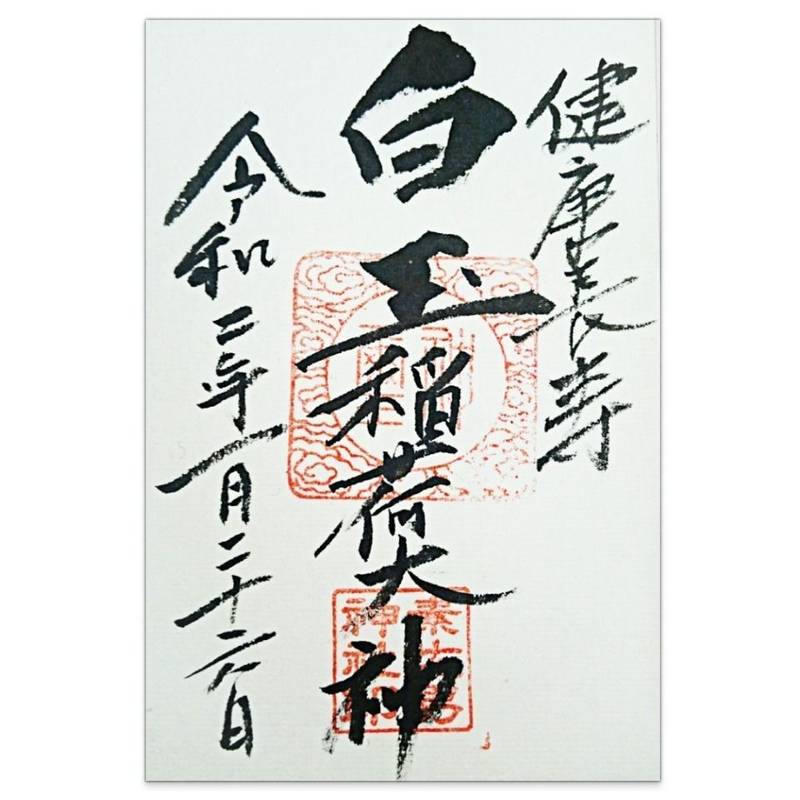 健康長寿
白玉稲荷大神
令和二年一月二十六日